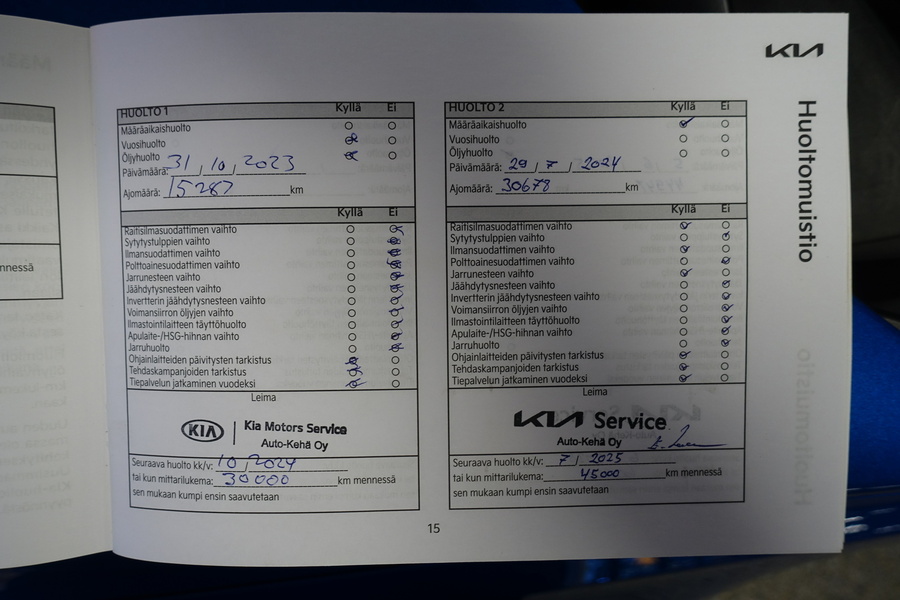 KIA
Huoltomuistio
HUOLTO 1 Kyllä Ei
Määräaikaishuolto
Vuosihuolto
Öljyhuolto
Päivämäärä: 31 / 10 / 2023
Ajomäärä: 15287 km
Kyllä Ei
Raitisilmasuodattimen vaihto
Sytytystulppien vaihto
Ilmansuodattimen vaihto
Polttoainesuodattimen vaihto
Jarrunesteen vaihto
Jäähdytysnesteen vaihto
Invertterin jäähdytysnesteen vaihto
Voimansiirron öljyjen vaihto
Ilmastointilaitteen täyttöhuolto
Apulaite-/HSG-hihnan vaihto
Jarruhuolto
Ohjainlaitteiden päivitysten tarkistus
Tehdaskampanjoiden tarkistus
Tiepalvelun jatkaminen vuodeksi
Leima
KIA Kia Motors Service
Auto-Kehä Oy
Seuraava huolto kk/v: 10 / 2024
tai kun mittarilukema: 30000 km mennessä
sen mukaan kumpi ensin saavutetaan
HUOLTO 2 Kyllä Ei
Määräaikaishuolto
Vuosihuolto
Öljyhuolto
Päivämäärä: 29 / 7 / 2024
Ajomäärä: 30678 km
Kyllä Ei
Raitisilmasuodattimen vaihto
Sytytystulppien vaihto
Ilmansuodattimen vaihto
Polttoainesuodattimen vaihto
Jarrunesteen vaihto
Jäähdytysnesteen vaihto
Invertterin jäähdytysnesteen vaihto
Voimansiirron öljyjen vaihto
Ilmastointilaitteen täyttöhuolto
Apulaite-/HSG-hihnan vaihto
Jarruhuolto
Ohjainlaitteiden päivitysten tarkistus
Tehdaskampanjoiden tarkistus
Tiepalvelun jatkaminen vuodeksi
Leima
KIA Service
Auto-Kehä Oy
Seuraava huolto kk/v: 7 / 2025
tai kun mittarilukema: 45000 km mennessä
sen mukaan kumpi ensin saavutetaan
15